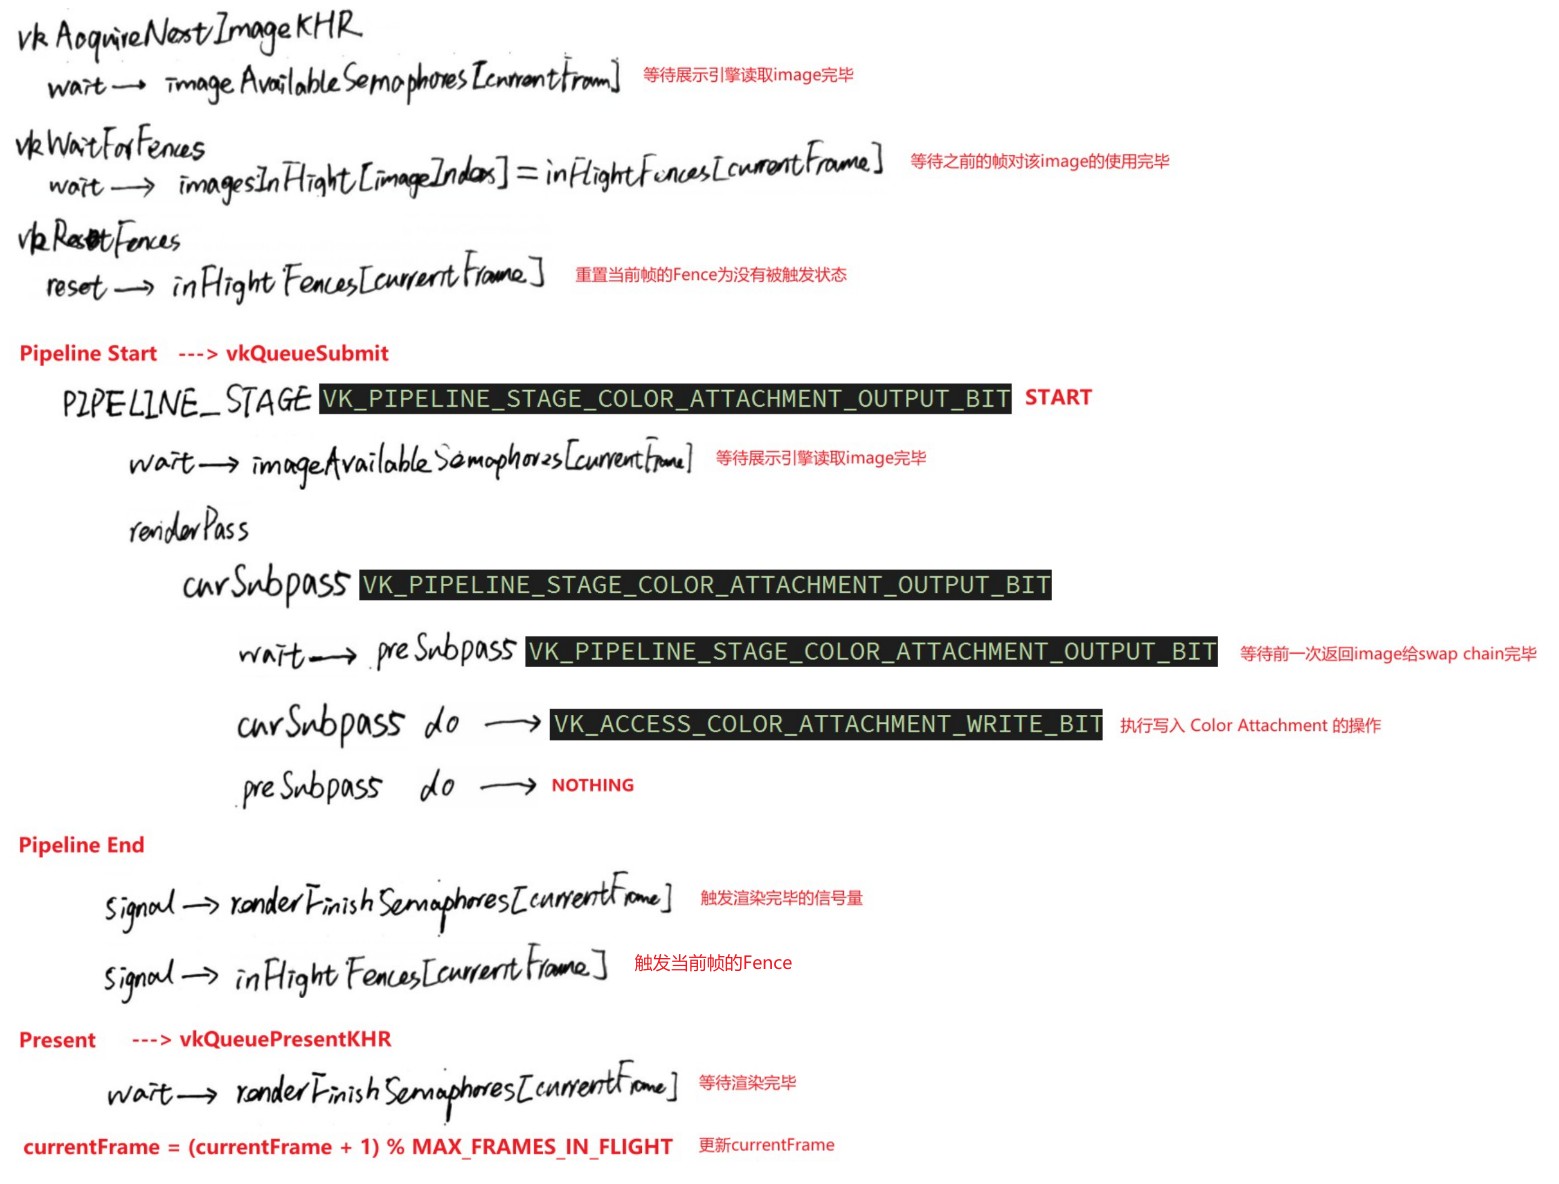 vkAcquireNextImageKHR
wait → imageAvailableSemaphores[currentFram] 等待展示引擎读取image完毕
vkWaitForFences
wait → imagesInFlight[imageIndex] = inFlightFences[currentFrame] 等待之前的帧对该image的使用完毕
vkResetFences
reset → inFlightFences[currentFrame] 重置当前帧的Fence为没有被触发状态
Pipeline Start ---> vkQueueSubmit
PIPELINE_STAGE VK_PIPELINE_STAGE_COLOR_ATTACHMENT_OUTPUT_BIT START
wait → imageAvailableSemaphores[currentFrame] 等待展示引擎读取image完毕
renderPass
curSubpass VK_PIPELINE_STAGE_COLOR_ATTACHMENT_OUTPUT_BIT
wait → preSubpass VK_PIPELINE_STAGE_COLOR_ATTACHMENT_OUTPUT_BIT 等待前一次返回image给swap chain完毕
curSubpass do → VK_ACCESS_COLOR_ATTACHMENT_WRITE_BIT 执行写入 Color Attachment 的操作
preSubpass do → NOTHING
Pipeline End
signal → renderFinishSemaphores[currentFrame] 触发渲染完毕的信号量
signal → inFlightFences[currentFrame] 触发当前帧的Fence
Present ---> vkQueuePresentKHR
wait → renderFinishSemaphores[currentFrame] 等待渲染完毕
currentFrame = (currentFrame + 1) % MAX_FRAMES_IN_FLIGHT 更新currentFrame